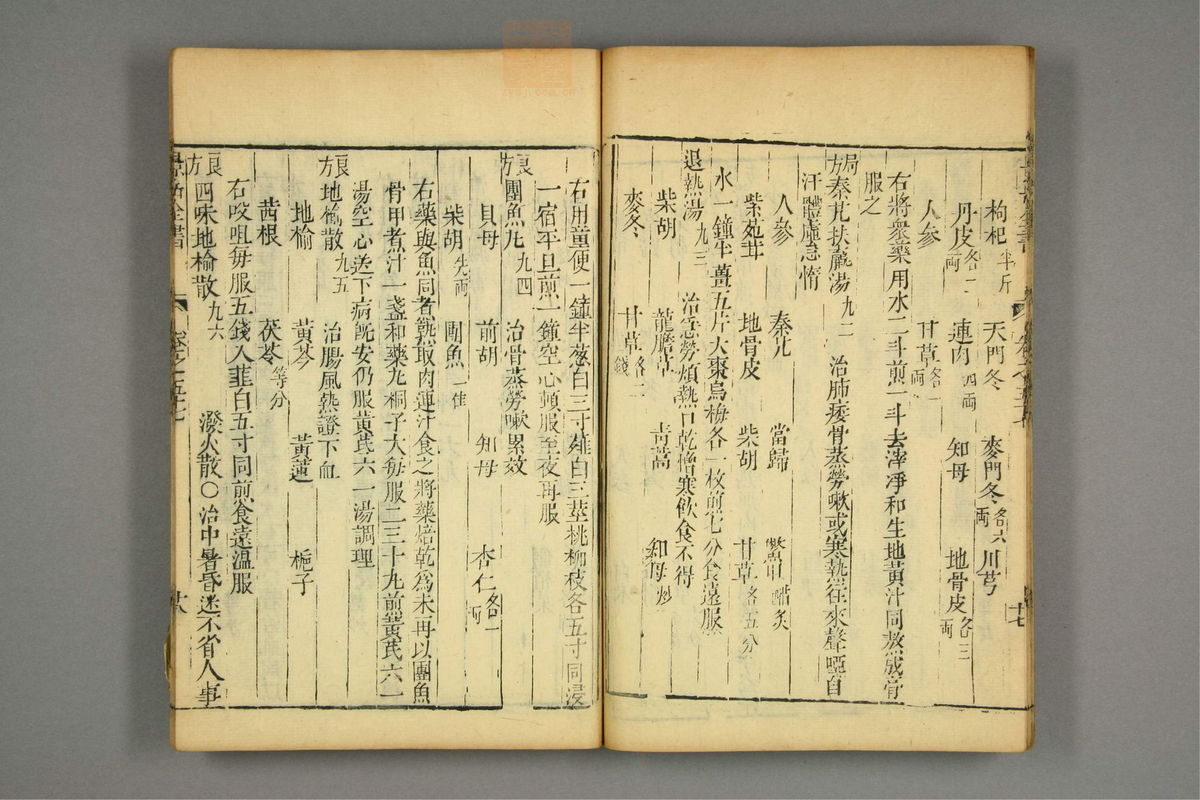 枸杞半斤 天門冬 麥門冬各六両 川芎
丹皮各二両 連肉四両 知母 地骨皮各三両
人參 甘草各一両
右將衆藥用水二斗煎一斗去滓凈和生地黃汁同熬成膏
服之
局方秦艽扶羸湯九二 治肺痿骨蒸勞嗽或寒熱往來聲啞自
汗體虛怠惰
人參 秦艽 當歸 鱉甲醋炙
紫苑茸 地骨皮 柴胡 甘草各五分
水一鐘半薑五片大棗烏梅各一枚煎七分食遠服
退熱湯九三 治急勞煩熱口乾憎寒飲食不得
柴胡 龍膽草 青蒿 知母炒
麥冬 甘草各二錢
十七
右用童便一鐘半葱白三寸薤白三莖桃柳枝各五寸同浸
一宿平旦煎一鐘空心頓服至夜再服
良方團魚丸九四 治骨蒸勞嗽累效
貝母 前胡 知母 杏仁各一両
柴胡 團魚一隹
右藥與魚同煮熟取肉連汁食之將藥焙乾爲末再以團魚
骨甲煮汁一盞和藥丸桐子大每服二三十丸煎黃芪六一
湯空心送下病既安仍服黃芪六一湯調理
良方地榆散九五 治腸風熱證下血
地榆 黃芩 黃蓮 梔子
茜根 茯苓等分
右㕮咀每服五錢入韭白五寸同煎食遠溫服
良方四味地榆散九六 潑火散〇治中暑昏迷不省人事
景岳全書 卷之五七